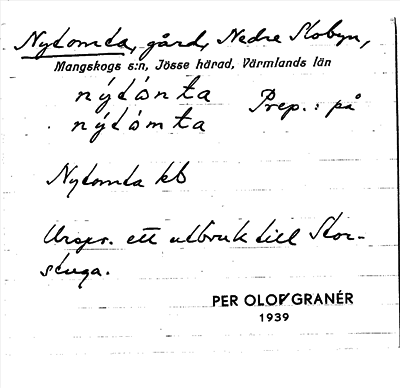 Nytomta, gård, Nedre Skobyn,
Mangskogs s:n, Jösse härad, Värmlands län
nýtònta Prep.: på
nýtòmta
Nytomta kb
Urspr. ett utbruk till Stor-
stuga.
PER OLOF GRANÉR
1939